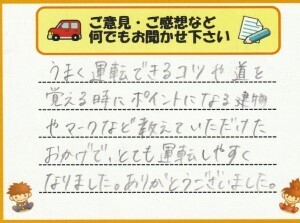 ご意見・ご感想など
何でもお聞かせ下さい
うまく運転できるコツや道を
覚える時にポイントになる建物
やマークなど教えていただけた
おかげで、とても運転しやすく
なりました。ありがとうございました。